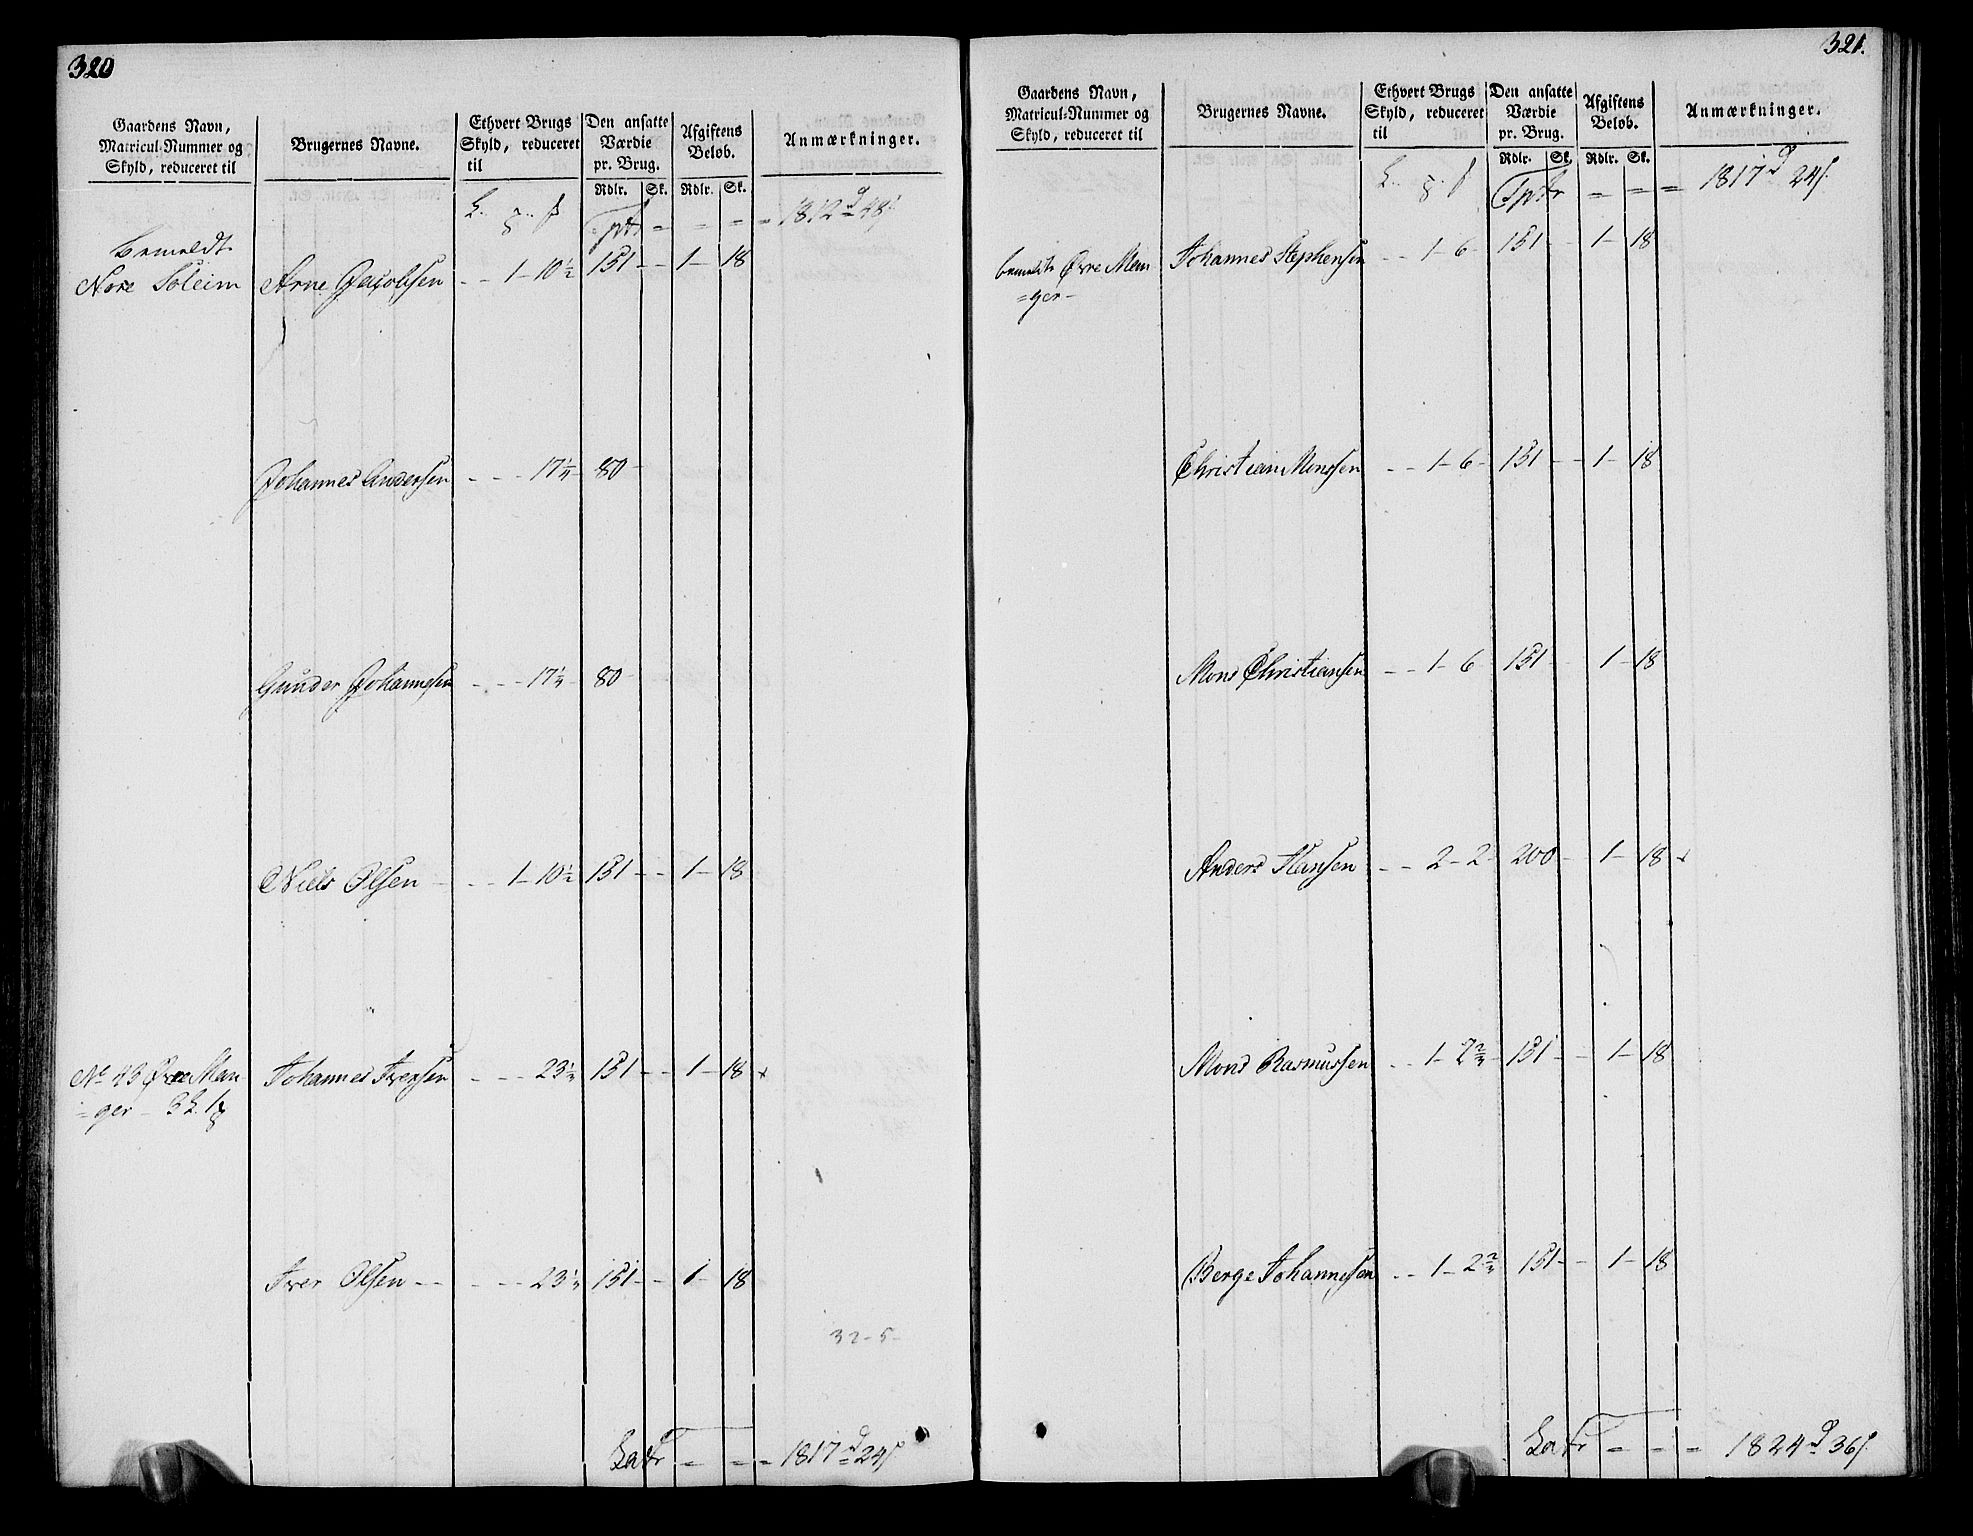 320
Gaardens Navn,
Matricul-Nummer og
Skyld, reduceret til
Brugernes Navne.
Ethvert Brugs
Skyld, reduceret
til
Den ansatte
Værdie
pr. Brug.
Afgiftens
Beløb.
Anmærkninger.
Rdlr. Sk. Rdlr. Sk.
Tptr. = = = = 1812 d 48 s
bemeldt
Nore Soleim Arne Jacobsen - - 1 - 10 1/2 151 - - 1 - 18
Johannes Andersen - - - 17 1/4 - 80 -
Gunder Johannesen - - - 17 1/4 - 80 -
Niels Olsen - - - 1 - 10 1/2 151 - - 1 - 18
Johannes Iversen - - - 23 1/4 151 - - 1 - 18 x
No 43 Øvre Man-
= ger - 3 L. 1
Iver Olsen - - - - - 23 1/4 151 - - 1 - 18
32 - 5 -
Latr = = = 1817 d 24 s
321.
Gaardens Navn,
Matricul-Nummer og
Skyld, reduceret til
Brugernes Navne.
Ethvert Brugs
Skyld, reduceret
til
Den ansatte
Værdie
pr. Brug.
Afgiftens
Beløb.
Anmærkninger.
Rdlr. Sk. Rdlr. Sk.
Tptr = = = 1817 d 24 s
bemeldte Øvre Man Johannes Stephensen - - 1 - 6 - 151 - - 1 - 18
= ger -
Christian Monssen - - 1 - 6 - 151 - - 1 - 18
Mons Christiansen - - 1 - 6 151 - - 1 - 18
Anders Hansen - - 2 - 2 - 200 - 1 - 18 x
Mons Rasmussen - - 1 - 2 2/4 - 151 - - 1 - 18
Berge Johannessen - - 1 - 2 2/4 151 - - 1 - 18
Latr = = = 1824 d 36 s